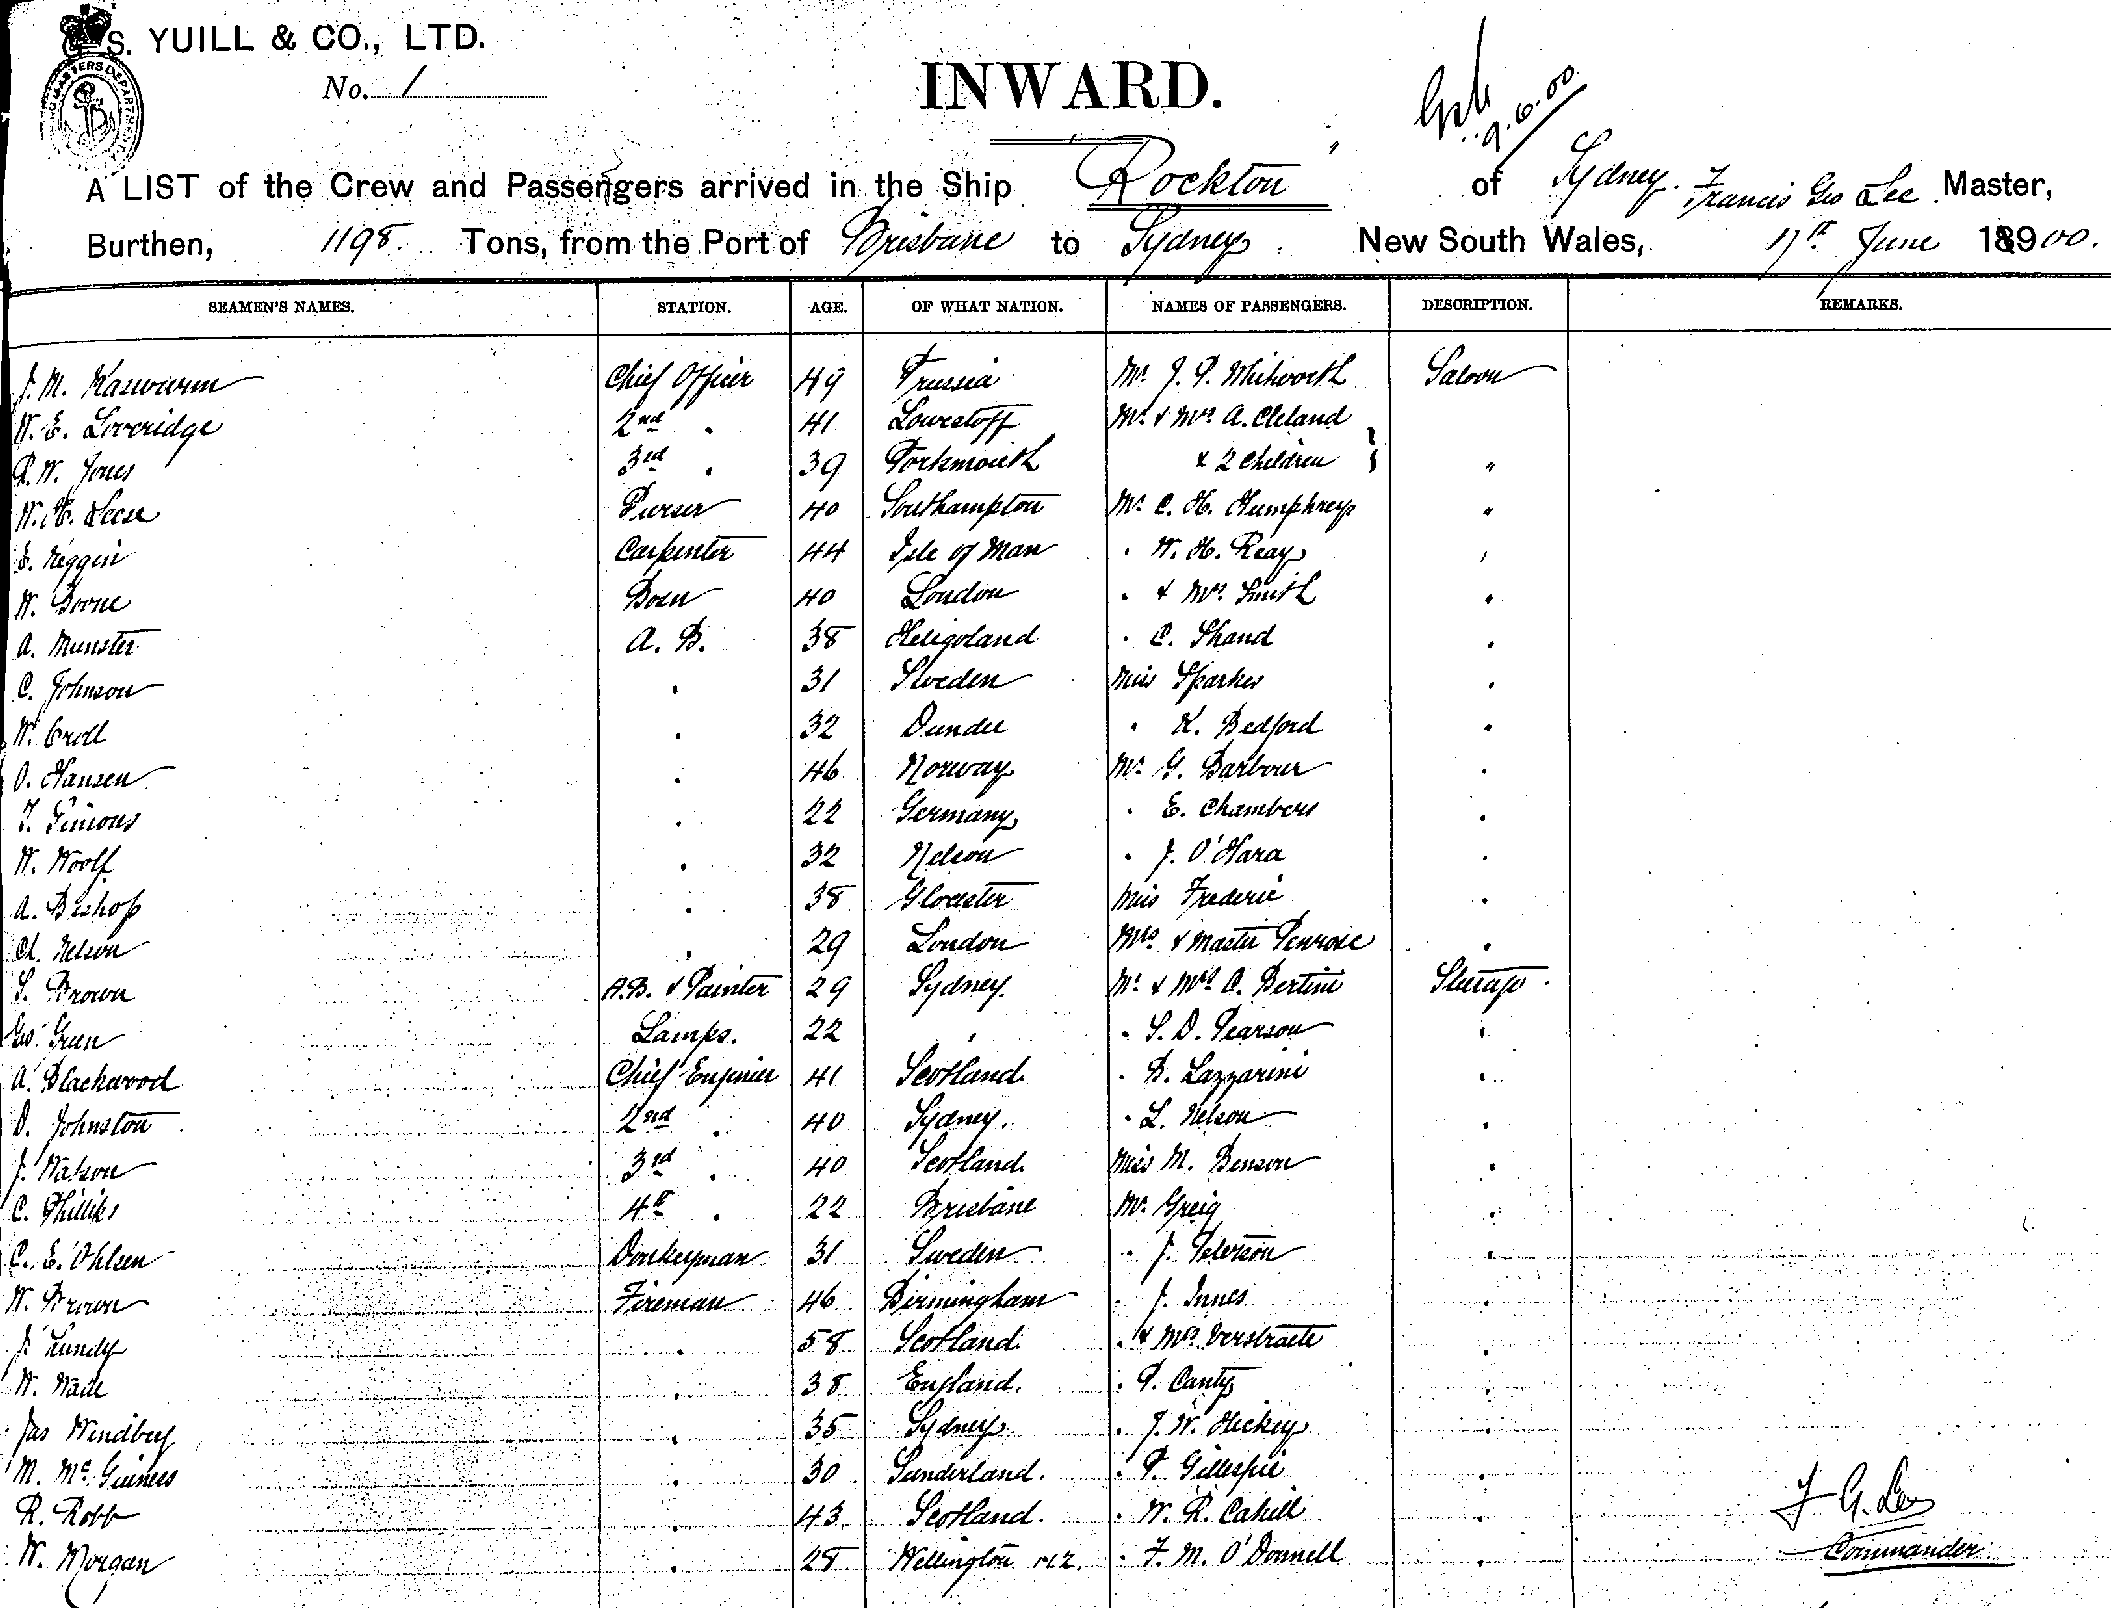 S. YUILL & CO., LTD.
No. 1
INWARD.
9.6.00
A LIST of the Crew and Passengers arrived in the Ship Rockton of Sydney. Francis Geo Lee Master,
Burthen, 1198. Tons, from the Port of Brisbane to Sydney. New South Wales, 17th June 18900.
SEAMEN'S NAMES. STATION. AGE. OF WHAT NATION. NAMES OF PASSENGERS. DESCRIPTION. REMARKS.
J. M. Kaswurm Chief Officer 49 Prussia Mr J. P. Whitworth Saloon
W. E. Loveridge 2nd " 41 Lowestoff Mr & Mrs A. Cleland
R. W. Jones 3rd " 39 Portsmouth & 2 Children } "
W. H. Leese Purser 40 Southampton Mr C. H. Humphreys "
E. Keggin Carpenter 44 Isle of Man " W. H. Reay "
W. Boone Bosn 40 London " & Mrs Smith "
A. Munster A. B. 38 Heligoland " C. Shand "
C. Johnson " 31 Sweden Miss Sparkes "
W. Croll " 32 Dundee " K. Bedford "
O. Hansen " 46 Norway Mr G. Barbour "
T. Simons " 22 Germany " E. Chambers "
W. Woolf " 32 Nelson " J. O'Hara "
A. Bishop " 38 Glocester Miss Frederic "
Ch. Nelson " 29 London Mrs & Master Penrose "
S. Brown A.B. & Painter 29 Sydney. Mr & Mrs A. Bertini Steerage
Geo. Green Lamps. 22 " " S. D. Pearson "
A. Blackwood Chief Engineer 41 Scotland. " B. Lazzarini "
D. Johnston 2nd " 40 Sydney. " L. Nelson "
J. Watson 3rd " 40 Scotland. Miss M. Benson "
C. Phillips 4th " 22 Brisbane Mr Greig "
C. E. Ohlsen Donkeyman 31 Sweden " J. Peterson "
W. Brown Fireman 46 Birmingham " J. Innes "
J. Lundy " 58 Scotland. " & Mrs Verstraete "
W. Wade " 38 England. " P. Canty "
Jas Windbey " 35 Sydney " J. W. Hickey "
M. McGuiness " 30 Sunderland. " P. Gillespie "
R. Robb " 43 Scotland. " W. R. Cahill "
W. Morgan " 28 Wellington NZ. " F. M. O'Donnell "
F G. Lee
Commander